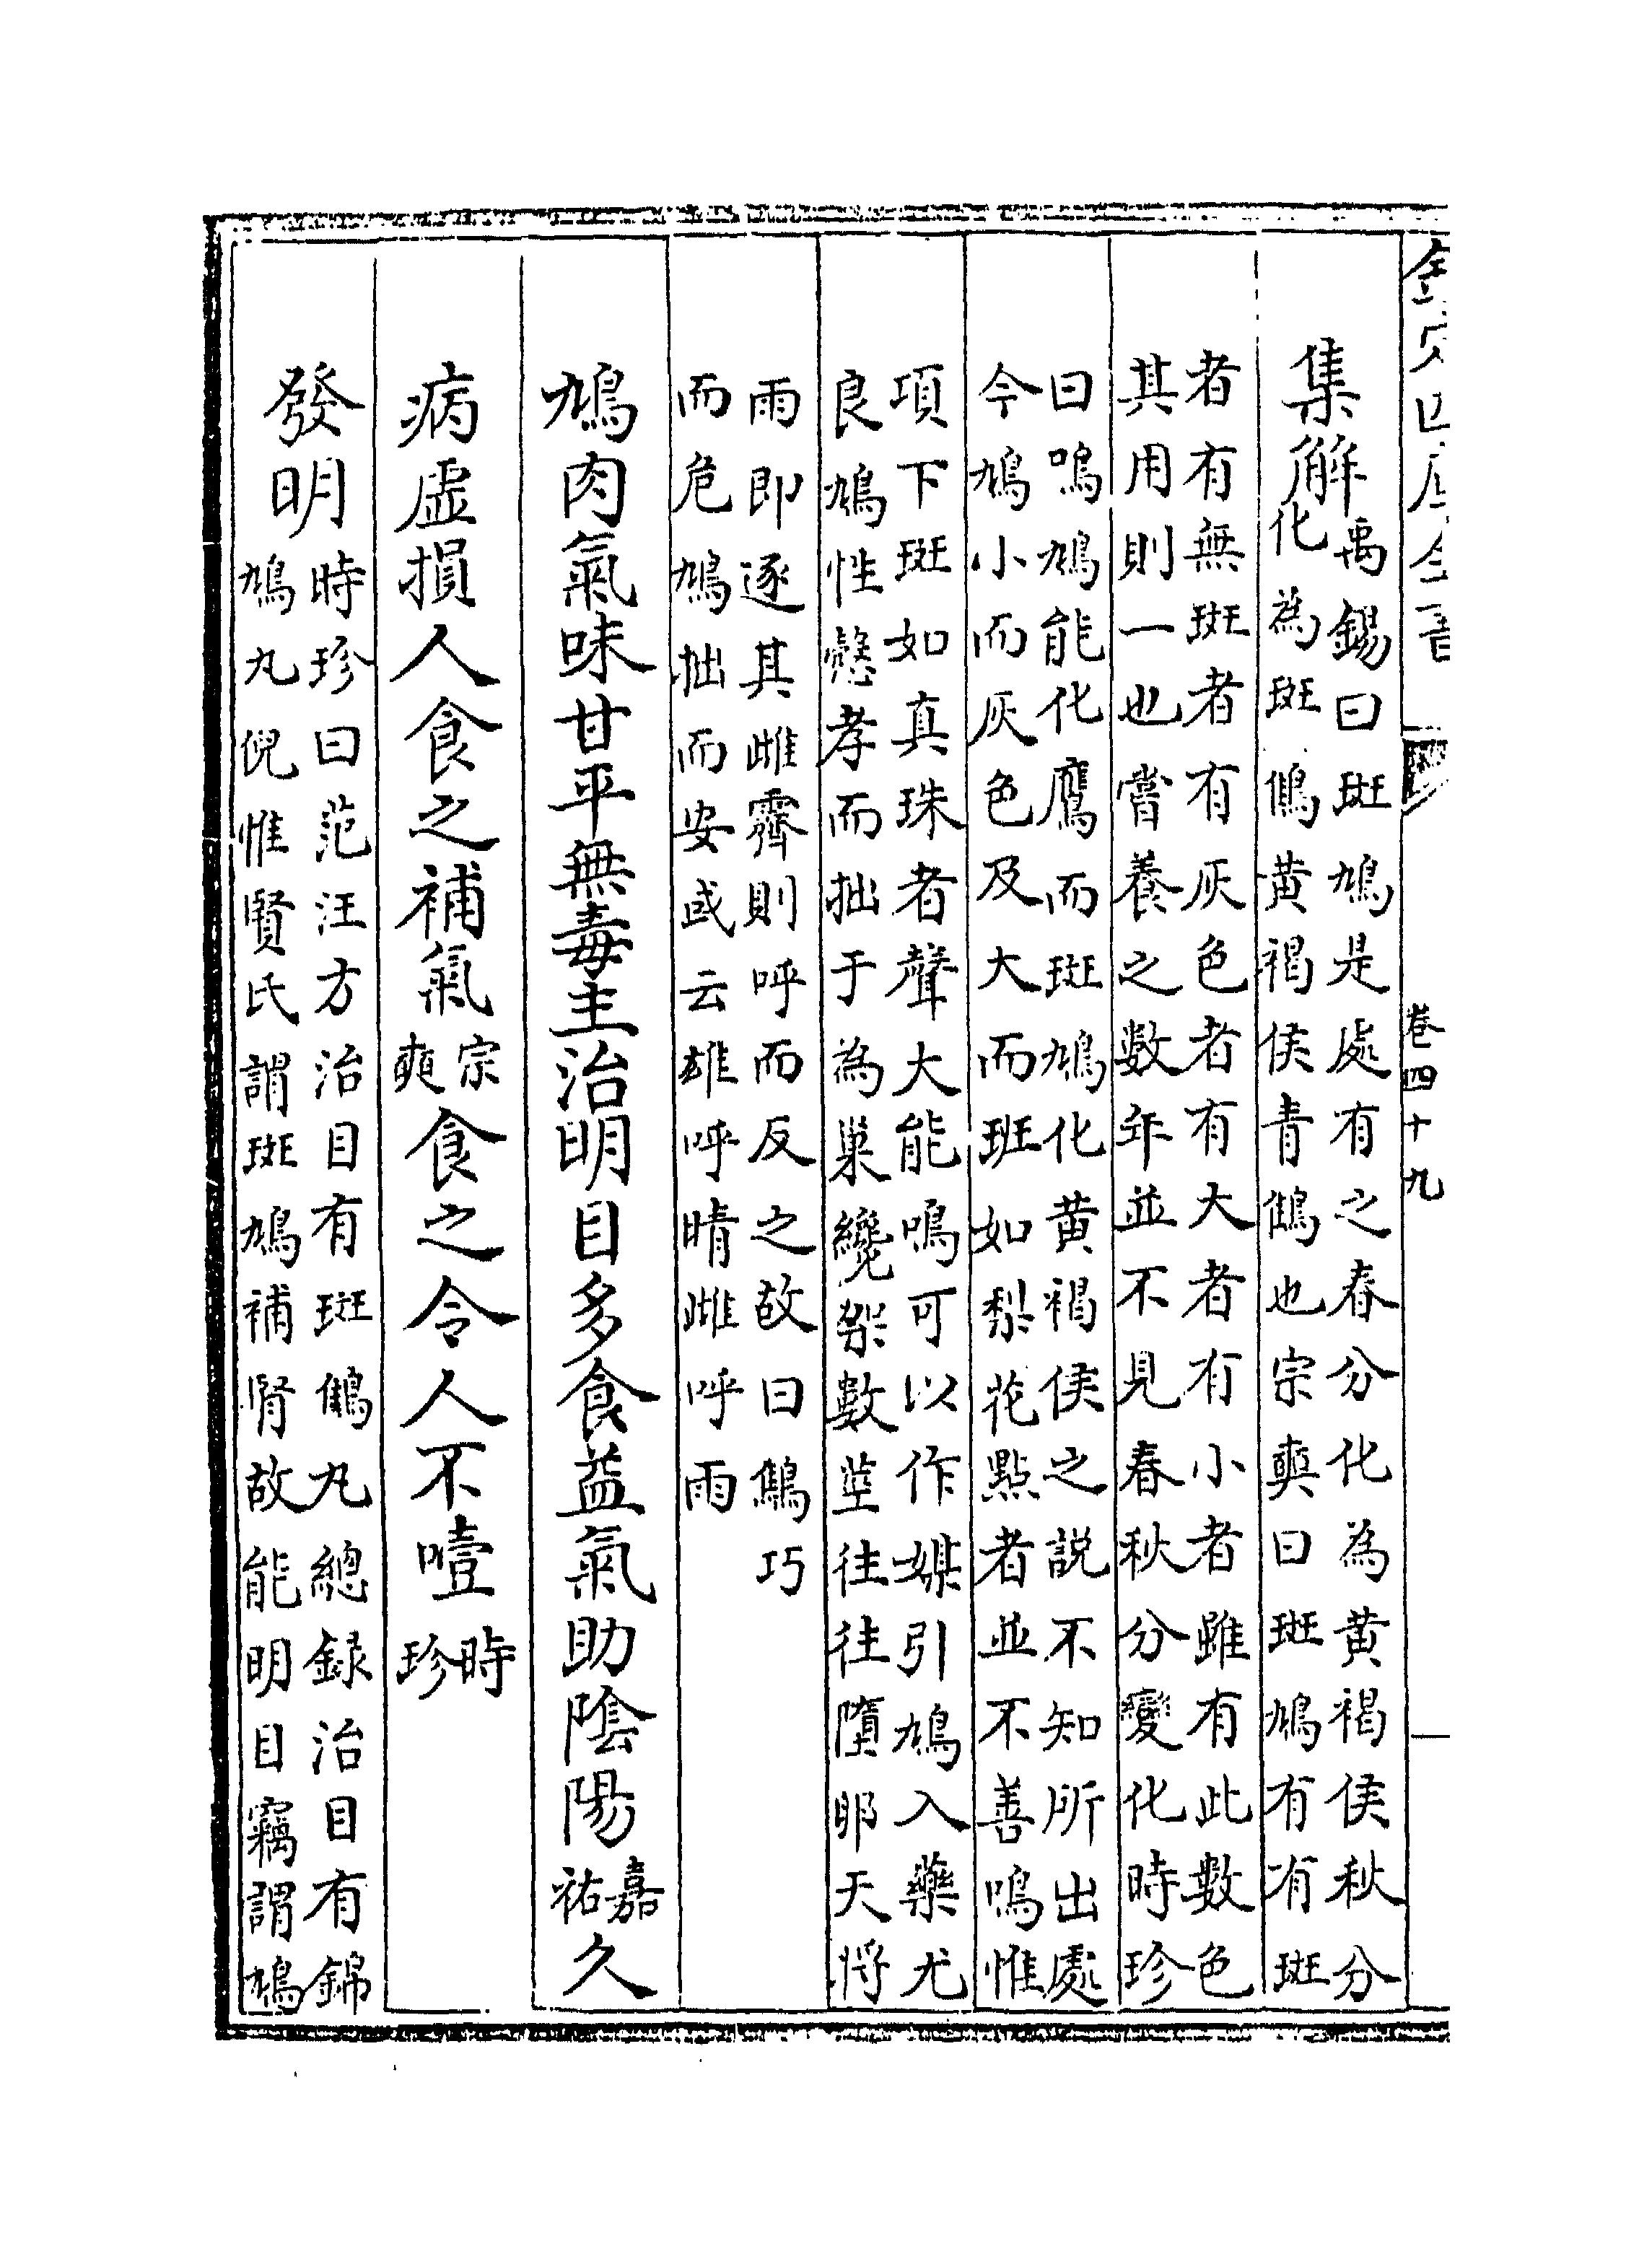 欽定四庫全書
卷四十九
集解禹錫曰斑鳩是處有之春分化為黄褐侯秋分
化為斑鵻黄褐侯青鵻也宗奭曰斑鳩有有斑
者有無斑者有灰色者有大者有小者雖有此數色
其用則一也嘗養之數年並不見春秋分變化時珍
曰鳴鳩能化鷹而斑鳩化黄褐侯之説不知所出處
今鳩小而灰色及大而班如梨花點者並不善鳴惟
項下斑如真珠者聲大能鳴可以作媒引鳩入藥尤
良鳩性慤孝而拙于為巢纔架數莖往往墮卵天將
雨即逐其雌霽則呼而反之故曰鷦巧
而危鳩拙而安或云雄呼晴雌呼雨
鳩肉氣味甘平無毒主治明目多食益氣助陰陽嘉祐久
病虛損人食之補氣宗奭食之令人不噎時珍
發明時珍曰范汪方治目有斑鵻丸總録治目有錦
鳩丸倪惟賢氏謂斑鳩補腎故能明目竊謂鳩